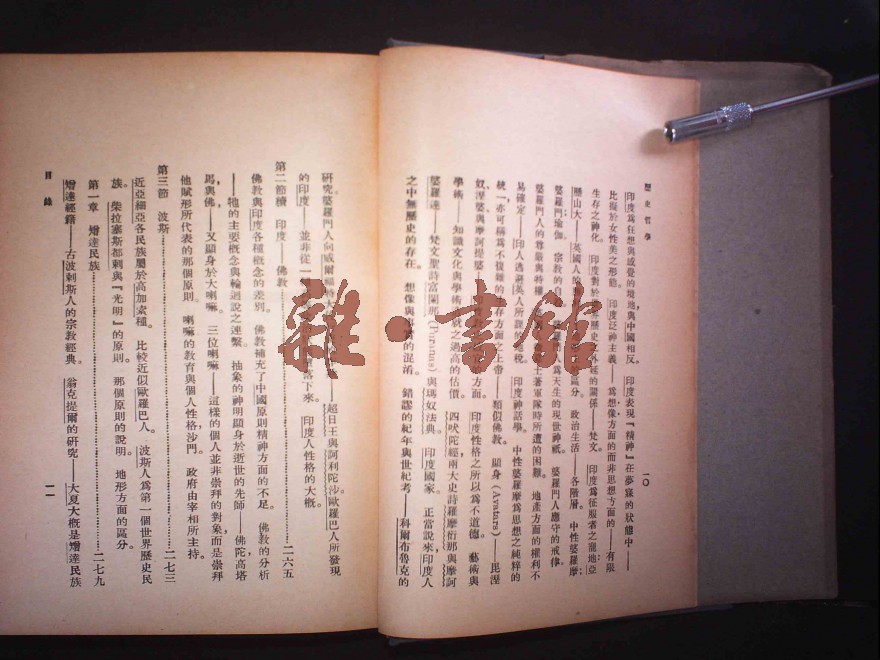 歷史哲學
一〇
印度爲在狂想與感覺的境地,與中國相反。 印度表現『精神』在夢寐的狀態中——
比擬於女性美之形態。 印度泛神主義——爲想像方面的而非思想方面的——有限
生存之神化。 印度對於 歷史 外延的關係——梵文。 印度爲征服者之寵地亞
歷山大——英國人 區分。 政治生活——各階層。 中性婆羅摩;
婆羅門;瑜伽。 宗教的自 爲天生的現世神祇。 婆羅門人應守的戒律。
婆羅門人的尊嚴與特權 土著軍隊時所遭的困難。 地產方面的權利不
易確定——印人逃避英人所課 稅。 印度神話學。 中性婆羅摩爲思想之純粹的
統一,亦可稱爲不復雜的生存方面之上帝——類似佛教。 顯身(Avatars)——毘溼
奴、溼婆與摩訶提婆 方面。 印度性格之所以爲不道德。 藝術與
學術——知識文化與學術 就之過高的估價。 四吠陀經兩大史詩羅摩衍那與摩訶
婆羅達——梵文聖詩富蘭那(Puranas)與瑪奴法典。 印度國家。 正當說來,印度人
之中無歷史的存在。 想像與事實的混淆。 錯謬的紀年與世紀考——科爾布魯克的
研究。婆羅門人向威爾福特大 ——超日王與阿利陀沙歐羅巴人所發現
的印度——並非從一 墮落下來。 印度人性格的大概。
第二節續 印度——佛教……二六五
佛教與印度各種概念的差別。 佛教補充了中國原則精神方面的不足。 佛教的分析
——牠的主要概念與輪迴說之連繫。 抽象的神明顯身於逝世的先師——佛陀,高塔
馬與佛——又顯身於大喇嘛。 三位喇嘛——這樣的個人並非崇拜的對象而是崇拜
他賦形所代表的那個原則。 喇嘛的教育與個人性格,沙門。 政府由宰相所主持。
第三節 波斯……二七三
近亞細亞各民族屬於高加索種。 比較近似歐羅巴人。 波斯人爲第一個世界歷史民
族。 柴拉塞斯都剌與『光明』的原則。 那個原則的說明。 地形方面的區分。
第一章 熷達民族……二七九
熷達經籍——古波剌斯人的宗教經典。 翁克提爾的研究——大夏大概是熷達民族
目錄
一一
雜·書館